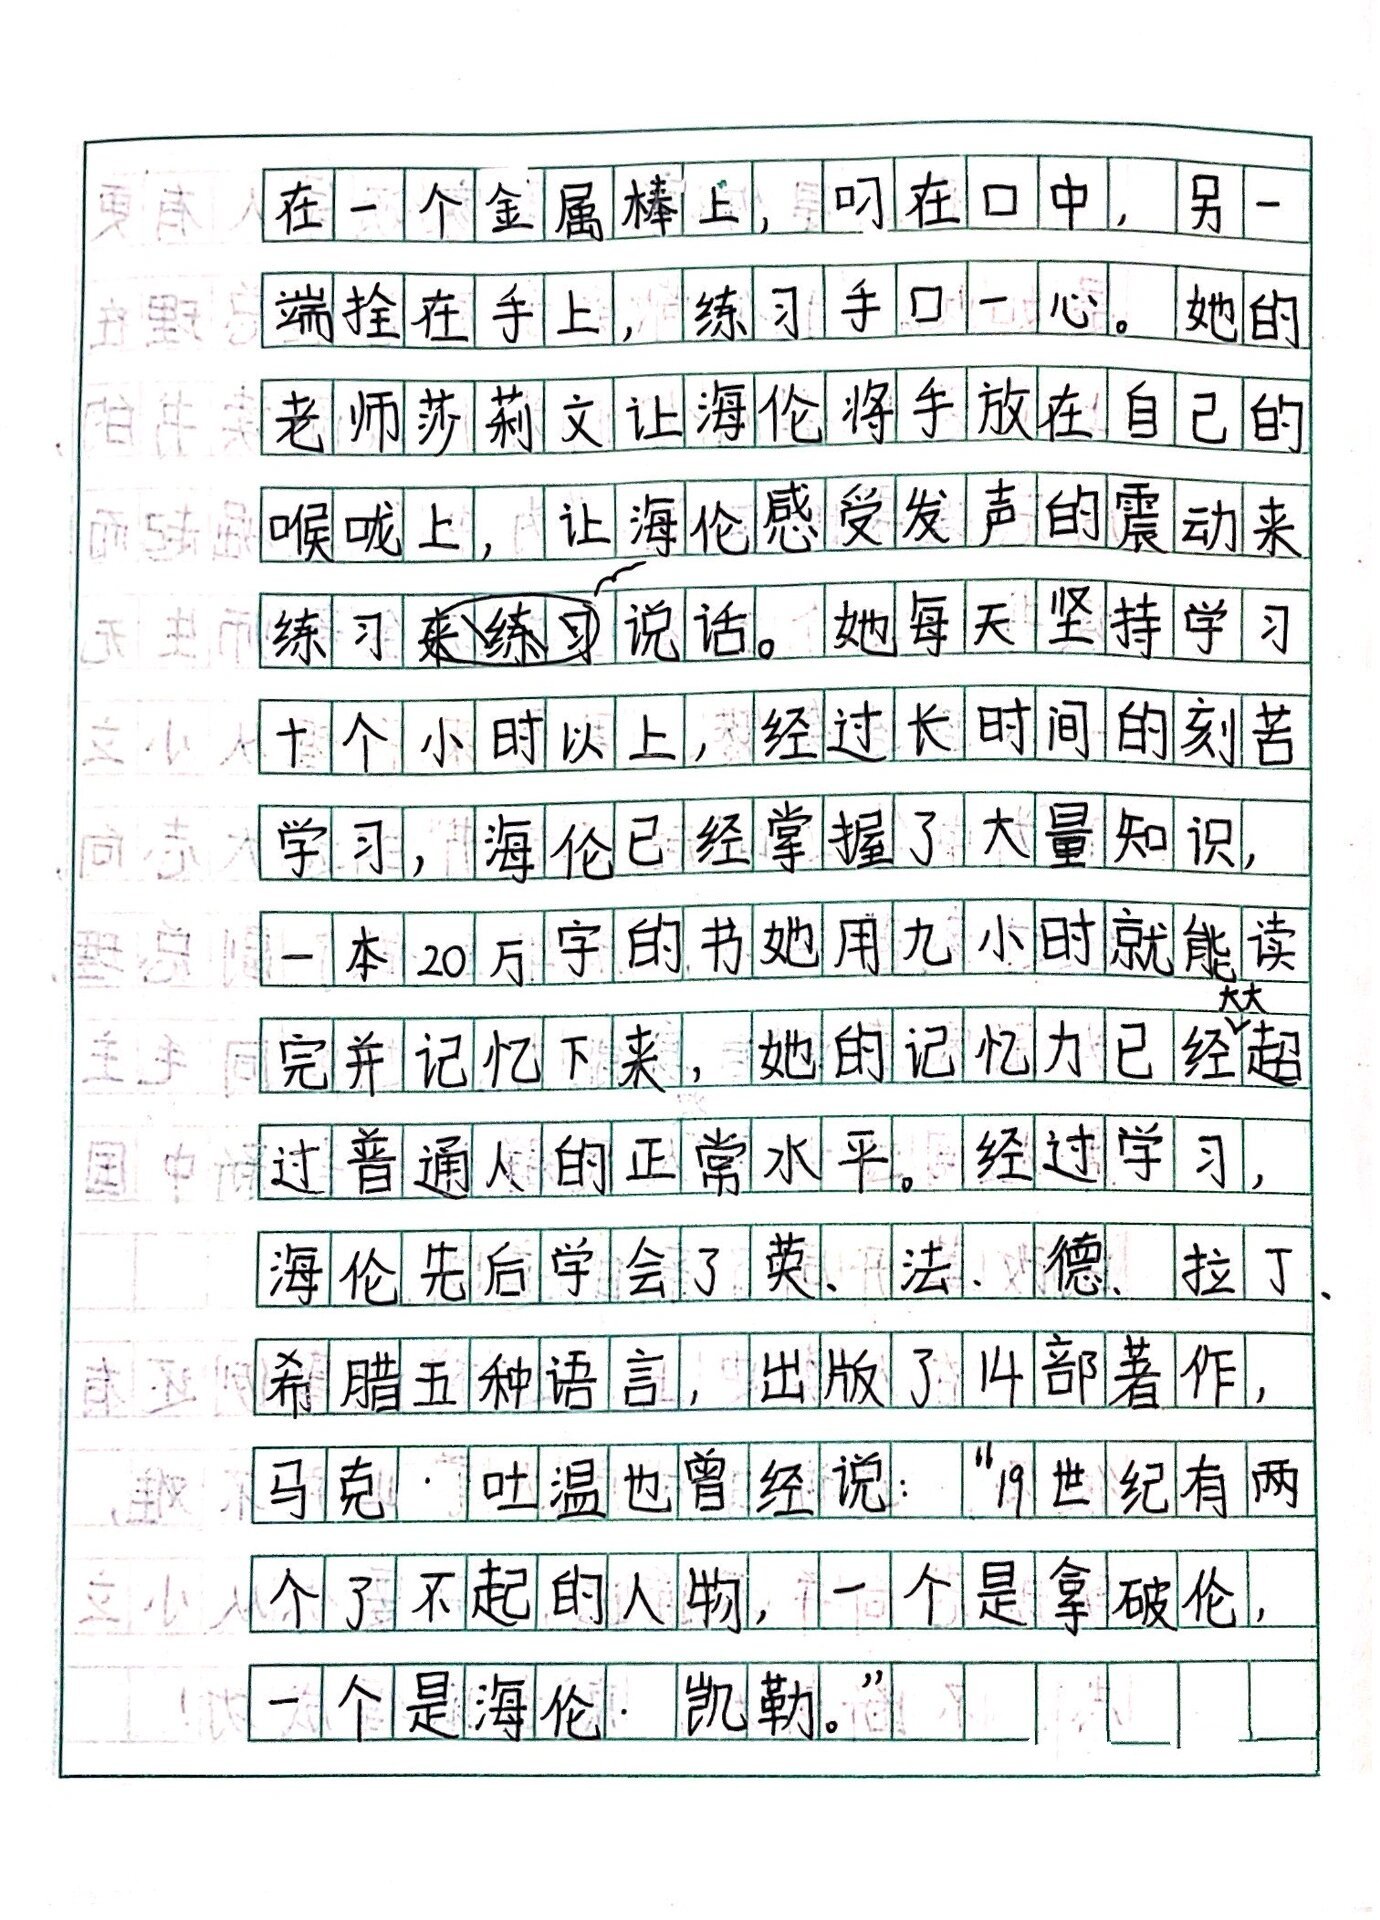 在一个金属棒上，叼在口中，另一
端拴在手上，练习手口一心。她的
老师莎莉文让海伦将手放在自己的
喉咙上，让海伦感受发声的震动来
练习来练习说话。她每天坚持学习
十个小时以上，经过长时间的刻苦
学习，海伦已经掌握了大量知识，
一本20万字的书她用九小时就能读
完并记忆下来，她的记忆力已经大大超
过普通人的正常水平。经过学习，
海伦先后学会了英、法、德、拉丁、
希腊五种语言，出版了14部著作，
马克·吐温也曾经说：“19世纪有两
个了不起的人物，一个是拿破伦，
一个是海伦·凯勒。”